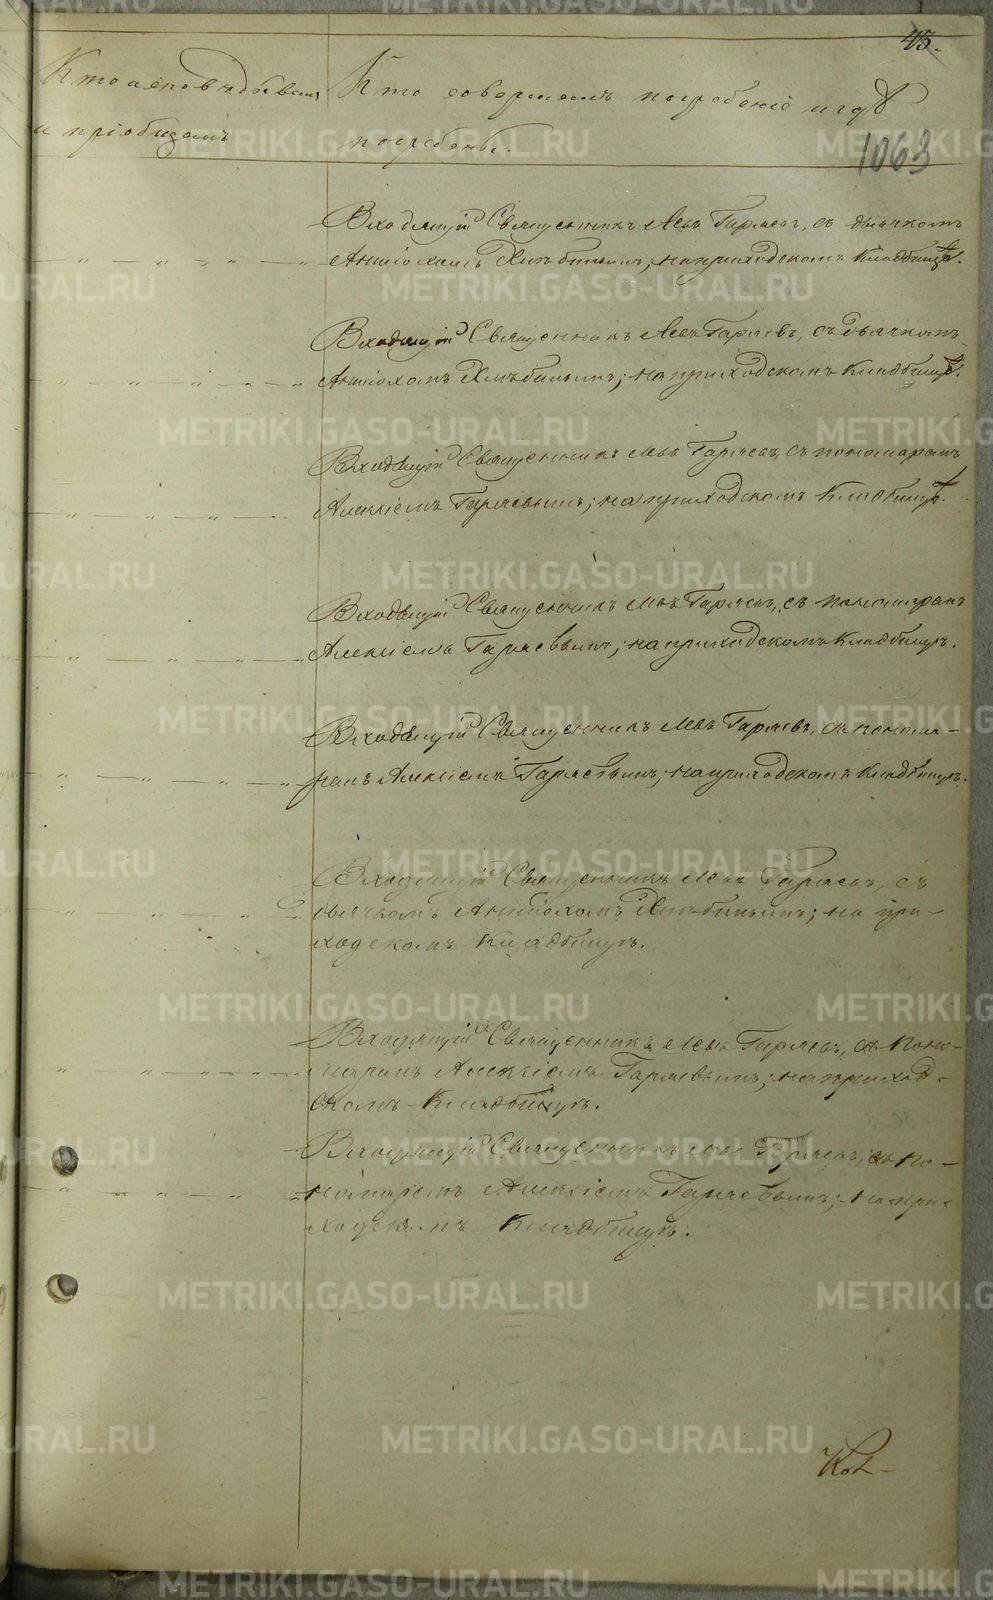 43.
1063
Кто исповѣдывалъ
и пріобщалъ
Кто совершалъ погребеніе и гдѣ
погребены.
Входящій Священникъ Левъ Гаряевъ, съ дьячкомъ
Антіохомъ Хлѣбинымъ; на приходскомъ кладбищѣ.
Входящій Священникъ Левъ Гаряевъ, съ дьячкомъ
Антіохомъ Хлѣбинымъ; на приходскомъ кладбищѣ.
Входящій Священникъ Левъ Гаряевъ, съ пономаремъ
Алексіемъ Гаряевымъ; на приходскомъ кладбищѣ.
Входящій Священникъ Левъ Гаряевъ, съ пономаремъ
Алексіемъ Гаряевымъ; на приходскомъ кладбищѣ.
Входящій Священникъ Левъ Гаряевъ, съ понома-
ремъ Алексіемъ Гаряевымъ; на приходскомъ кладбищѣ.
Входящій Священникъ Левъ Гаряевъ, съ
дьячкомъ Антіохомъ Хлѣбинымъ; на при-
ходскомъ кладбищѣ.
Входящій Священникъ Левъ Гаряевъ, съ поно-
маремъ Алексіемъ Гаряевымъ; на приход-
скомъ кладбищѣ.
Входящій Священникъ Левъ Гаряевъ, съ по-
номаремъ Алексіемъ Гаряевымъ; на при-
ходскомъ кладбищѣ.
METRIKI.GASO-URAL.RU